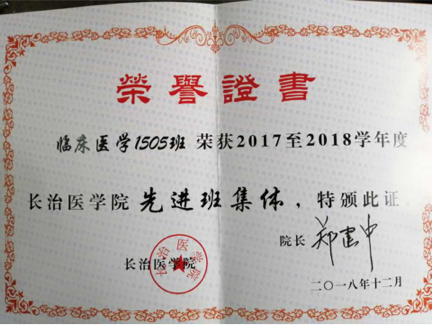 榮譽證書
临床医学1505班 荣获2017至2018学年度
长治医学院 先进班集体，特颁此证。
院长 郑建中
长治医学院
长治医学院
二〇一八年十二月